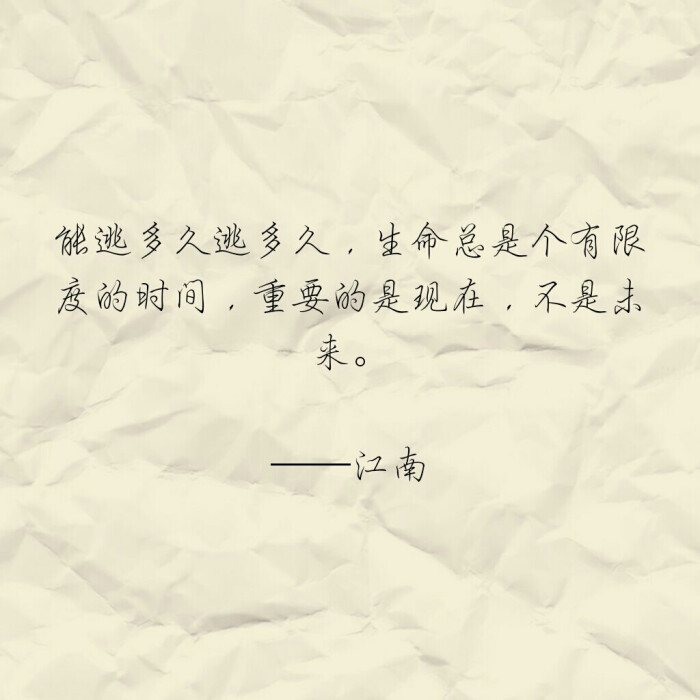 能逃多久逃多久，生命总是个有限
度的时间，重要的是现在，不是未
来。
——江南